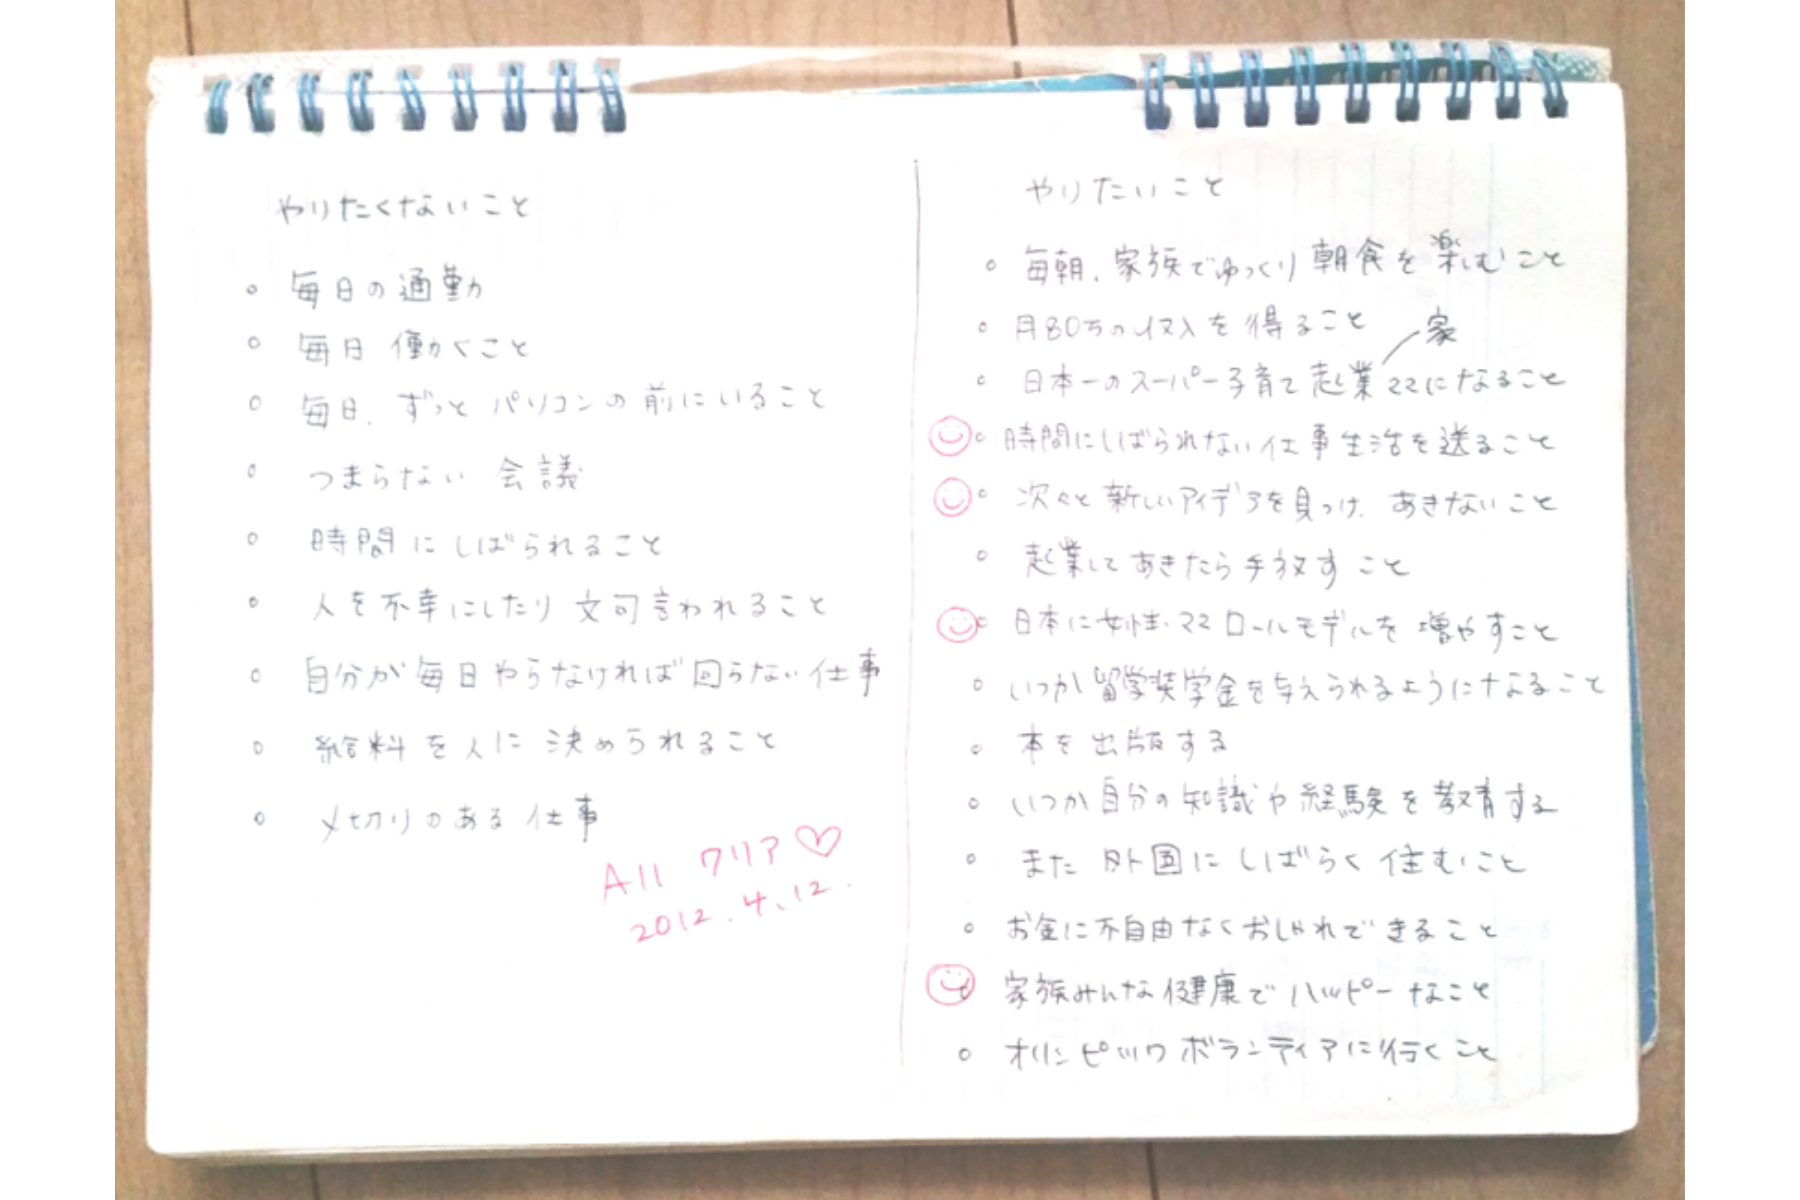 やりたくないこと
。毎日の通勤
。毎日働くこと
。毎日、ずっとパソコンの前にいること
。つまらない会議
。時間にしばられること
。人を不幸にしたり文句言われること
。自分が毎日やらなければ回らない仕事
。給料を人に決められること
。〆切りのある仕事
All クリア♡
2012.4.12.
やりたいこと
。毎朝、家族でゆっくり朝食を楽しむこと
。月80万の収入を得ること
家
。日本一のスーパー子育て起業ママになること
。時間にしばられない仕事生活を送ること
。次々と新しいアイデアを見つけ、あきないこと
。起業してあきたら手放すこと
。日本に女性・ママロールモデルを増やすこと
。いつか留学奨学金を与えられるようになること
。本を出版する
。いつか自分の知識や経験を教育する
。また外国にしばらく住むこと
。お金に不自由なくおしゃれできること
。家族みんな健康でハッピーなこと
。オリンピックボランティアに行くこと